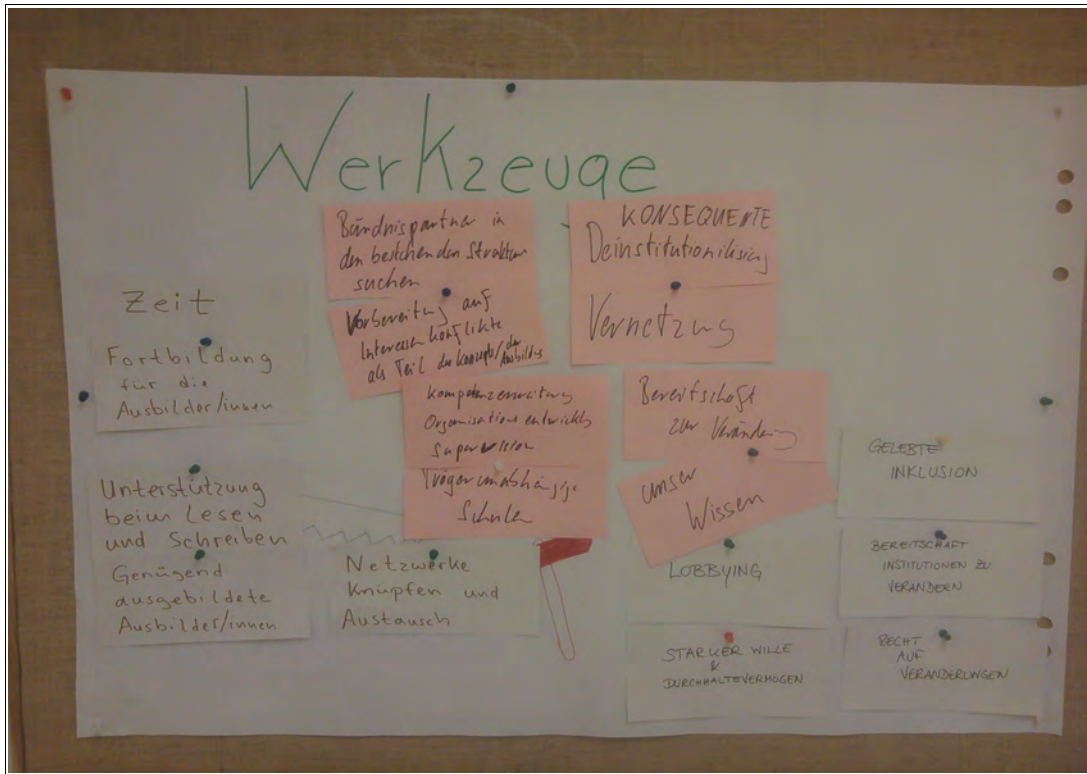 Werkzeuge
Bündnispartner in
den bestehenden Strukturen
suchen
Vorbereitung auf
Interessenkonflikte
als Teil der Konzepte/der Ausbildung
KONSEQUENTE
Deinstitutionilisierung
Vernetzung
Zeit
Fortbildung
für die
Ausbilder/innen
Kompetenzerweiterung
Organisationsentwicklg
Supervision
Trägerunabhängige
Schulen
Bereitschaft
zur Veränderung
unser
Wissen
Unterstützung
beim Lesen
und Schreiben
Genügend
ausgebildete
Ausbilder/innen
Netzwerke
knüpfen und
Austausch
LOBBYING
STARKER WILLE
&
DURCHHALTEVERMÖGEN
GELEBTE
INKLUSION
BEREITSCHAFT
INSTITUTIONEN ZU
VERÄNDERN
RECHT
AUF
VERÄNDERUNGEN